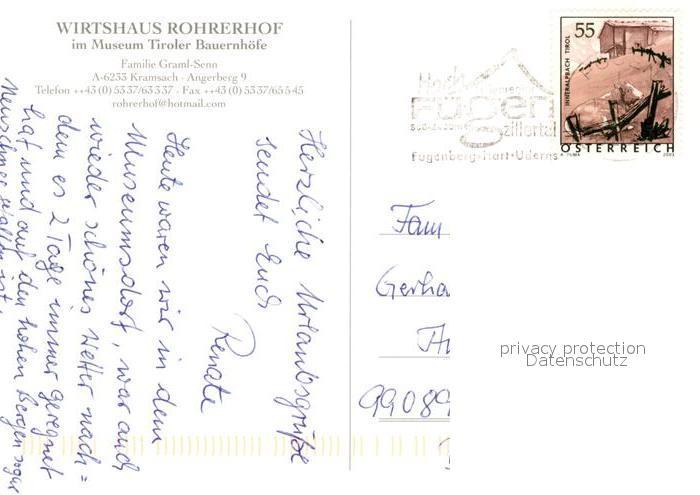 WIRTSHAUS ROHRERHOF
im Museum Tiroler Bauernhöfe
Familie Graml-Senn
A-6233 Kramsach · Angerberg 9
Telefon ++43 (0) 53 37/63 3 37 · Fax ++43 (0) 53 37/65 5 45
rohrerhof@hotmail.com
Herzliche Urlaubsgrüße
sendet Euch
Renate
Heute waren wir in dem
Museumsdorf, war auch
wieder schönes Wetter nach=
dem es 2 Tage immer geregnet
hat und auf den hohen Bergen sogar
Neuschnee gefallen ist.
Hoch
Fügen
zillertal
Fügenberg·Hart·Uderns
55
INNERALPBACH TIROL
ÖSTERREICH
Fam
Gerha
99089
privacy protection
Datenschutz